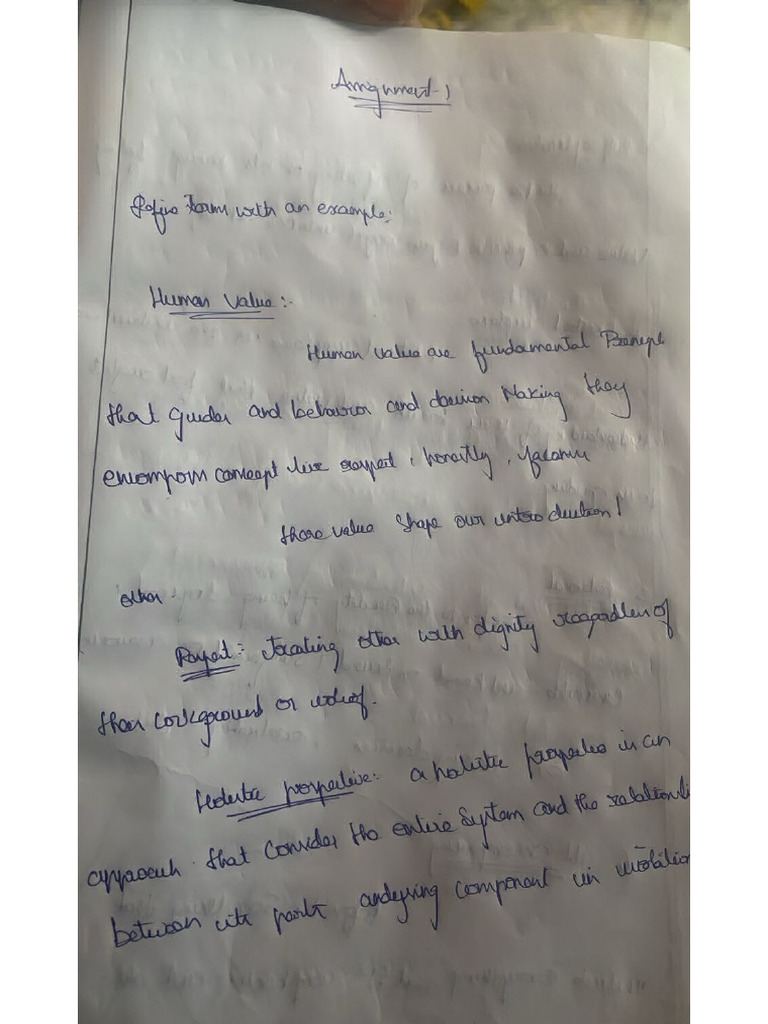 Assignment-1
Define term with an example:
Human value:-
Human value are fundamental
that guides and behaviour and decision Making they
encompass concept like respect, honestly,
these value shape our
other
Respect:- treating other with dignity regardless of
their background or
Holistic perspective: a holistic is an
approach that consider the entire system and the
between its parts analysing component in